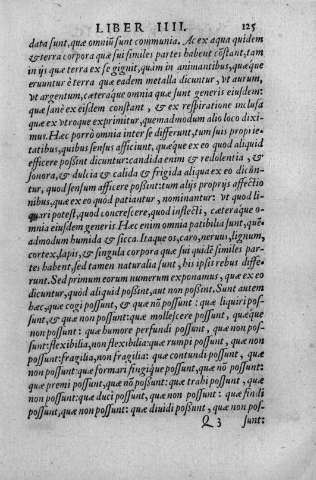 LIBER IIII. 125
data sunt, quæ omniū sunt communia. Ac ex aqua quidem
& terra corpora quæ sui similes partes habent cōstant, tam
in ijs quæ terra ex se gignit, quàm in animantibus, quæq́ue
eruuntur è terra quæ eadem metalla dicuntur, vt aurum,
vt argentum, cæteraq́ue omnia quæ sunt generis eiusdem:
quæ sanè ex eisdem constant, & ex respiratione inclusa
quæ ex vtroque exprimitur, quemadmodum alio loco dixi-
mus. Hæc porrò omnia inter se differunt, tum suis proprie-
tatibus, quibus sensus afficiunt, quæq́ue ex eo quod aliquid
efficere possint dicuntur: candida enim & redolentia, &
sonora, & dulcia & calida & frigida aliqua ex eo dicūn-
tur, quod sensum afficere possint: tum alijs proprijs affectio
nibus, quæ ex eo quod patiantur, nominantur: vt quod li-
quari potest, quod concrescere, quod inflecti, cæteraq́ue o-
mnia eiusdem generis. Hæc enim omnia patibilia sunt, que
admodum humida & sicca. Itaque os, caro, neruus, lignum,
cortex, lapis, & singula corpora quæ sui quidē similes par-
tes habent, sed tamen naturalia sunt, his ipsis rebus diffe-
runt. Sed primum eorum numerum exponamus, quæ ex eo
dicuntur, quòd aliquid possint, aut non possint. Sunt autem
hæc, quæ cogi possunt, & quæ nō possunt: quæ liquiri pos-
sunt, & quæ non possunt: quæ mollescere possunt, quæque
non possunt: quæ humore perfundi possunt, quæ non pos-
sunt: flexibilia, non flexibilia: quæ rumpi possunt, quæ non
possunt: fragilia, non fragilia: quæ contundi possunt, quæ
non possunt: quæ formari fingiq́ue possunt, quæ nō possunt:
quæ premi possunt, quæ nō possunt: quæ trahi possunt, quæ
non possunt: quæ duci possunt, quæ non possunt: quæ findi
possunt, quæ non possunt: quæ diuidi possunt, quæ non pos-
Q 3 sunt: